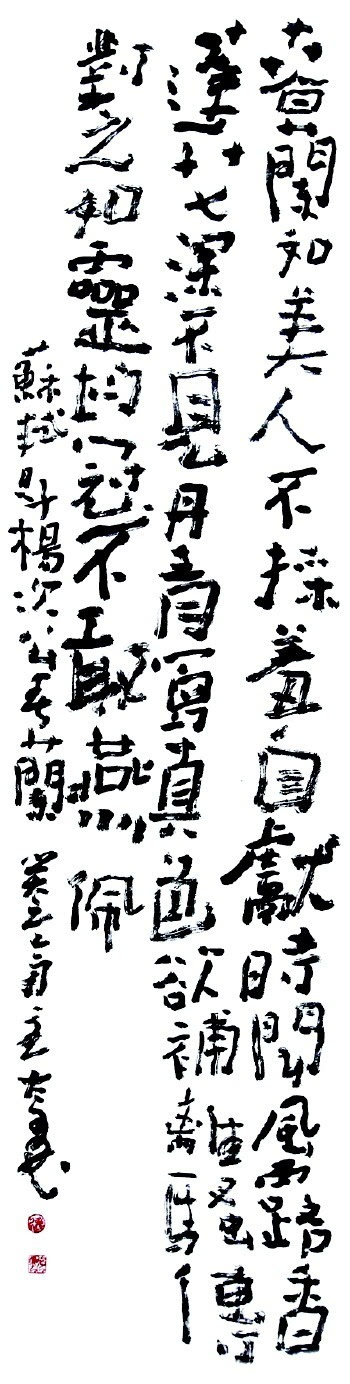 春蘭如美人不採羞自獻時聞風露香
蓬艾深不見丹青寫真色欲補離騷傳
對之如靈均冠不敢燕佩
蘇軾題楊次公春蘭